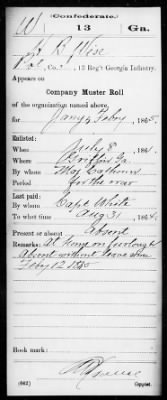 Confederate.
W 13 Ga.
B Wise
Co. , 13 Reg't Georgia Infantry.
Appears on
Company Muster Roll
of the organization named above,
for Jany & Feby, 1865.
Enlisted:
When July 8, 186
Where Griffin Ga.
By whom Maj Calhoun
Period for the war
Last paid:
By whom Capt White
To what time Aug 31, 1864.
Present or absent Absent
Remarks: At home on furlough &
Absent without leave since
Feby 12 1865
Book mark:
(642) Copyist.